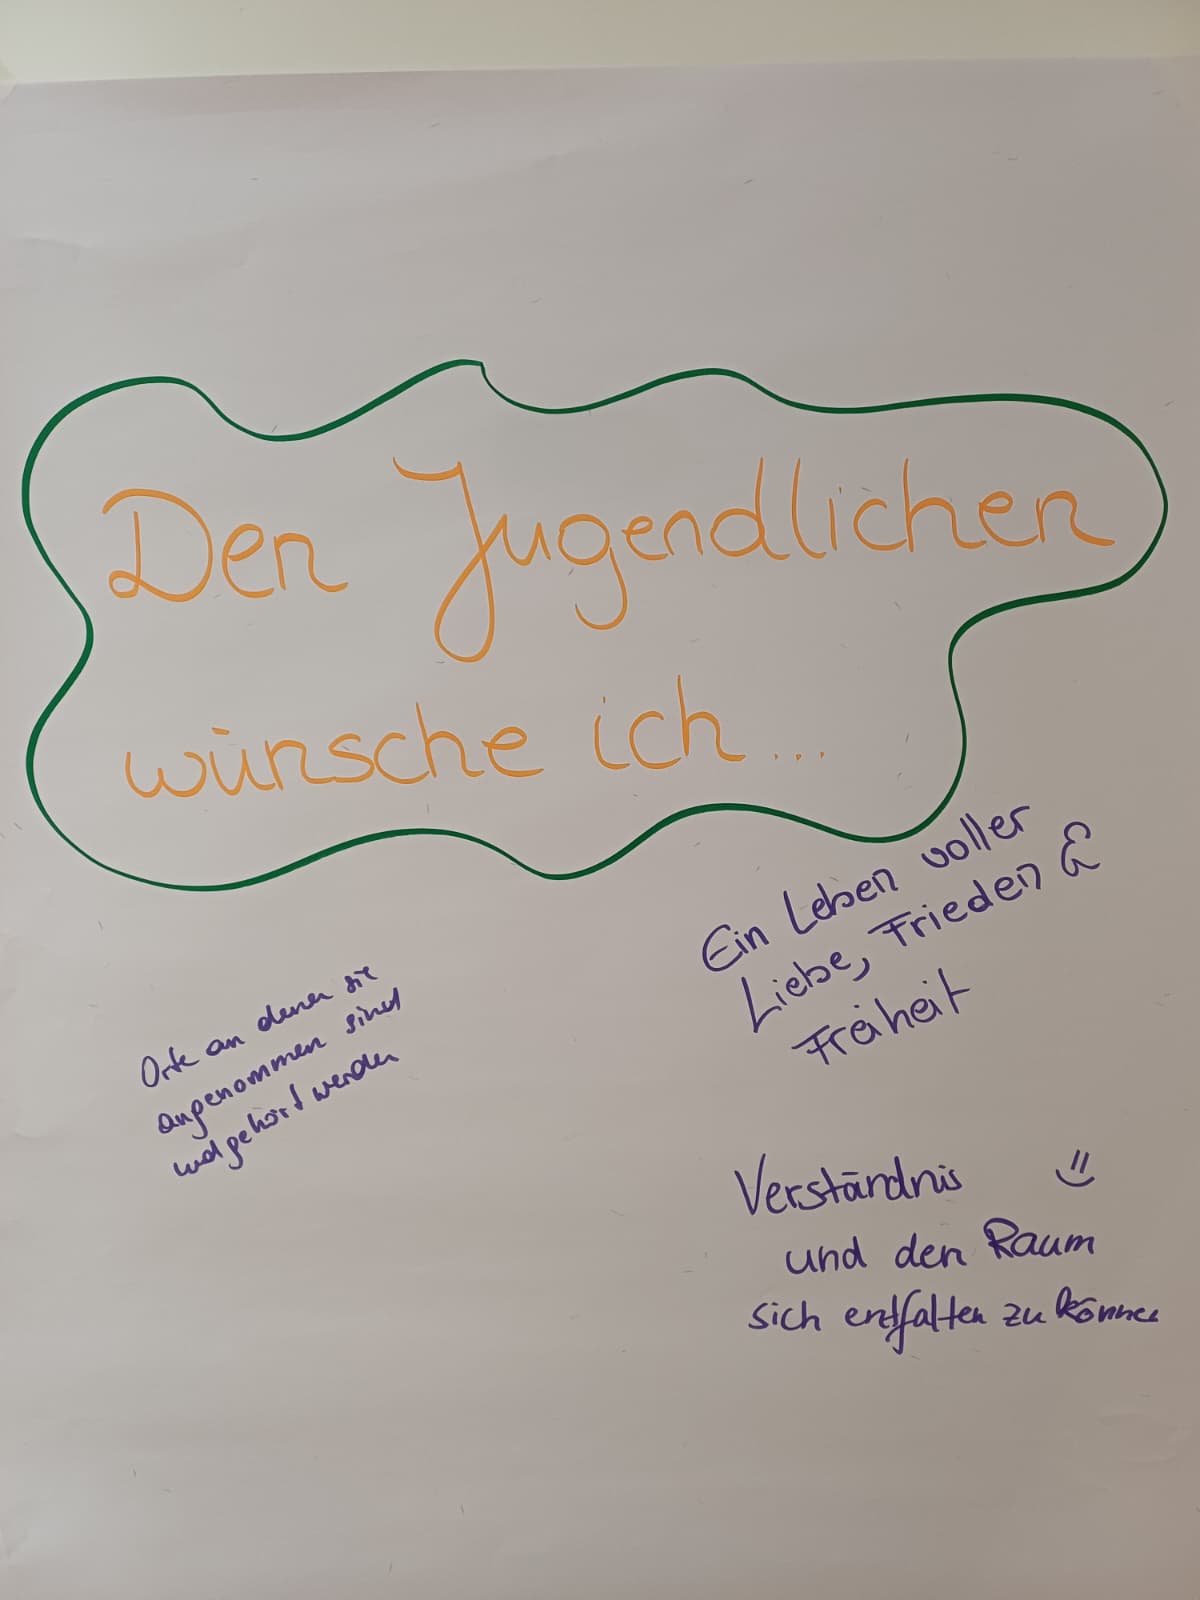 Den Jugendlichen
wünsche ich...
Ein Leben voller
Liebe, Frieden &
Freiheit
Orte an denen sie
angenommen sind
und gehört werden
Verständnis
und den Raum
sich entfalten zu können